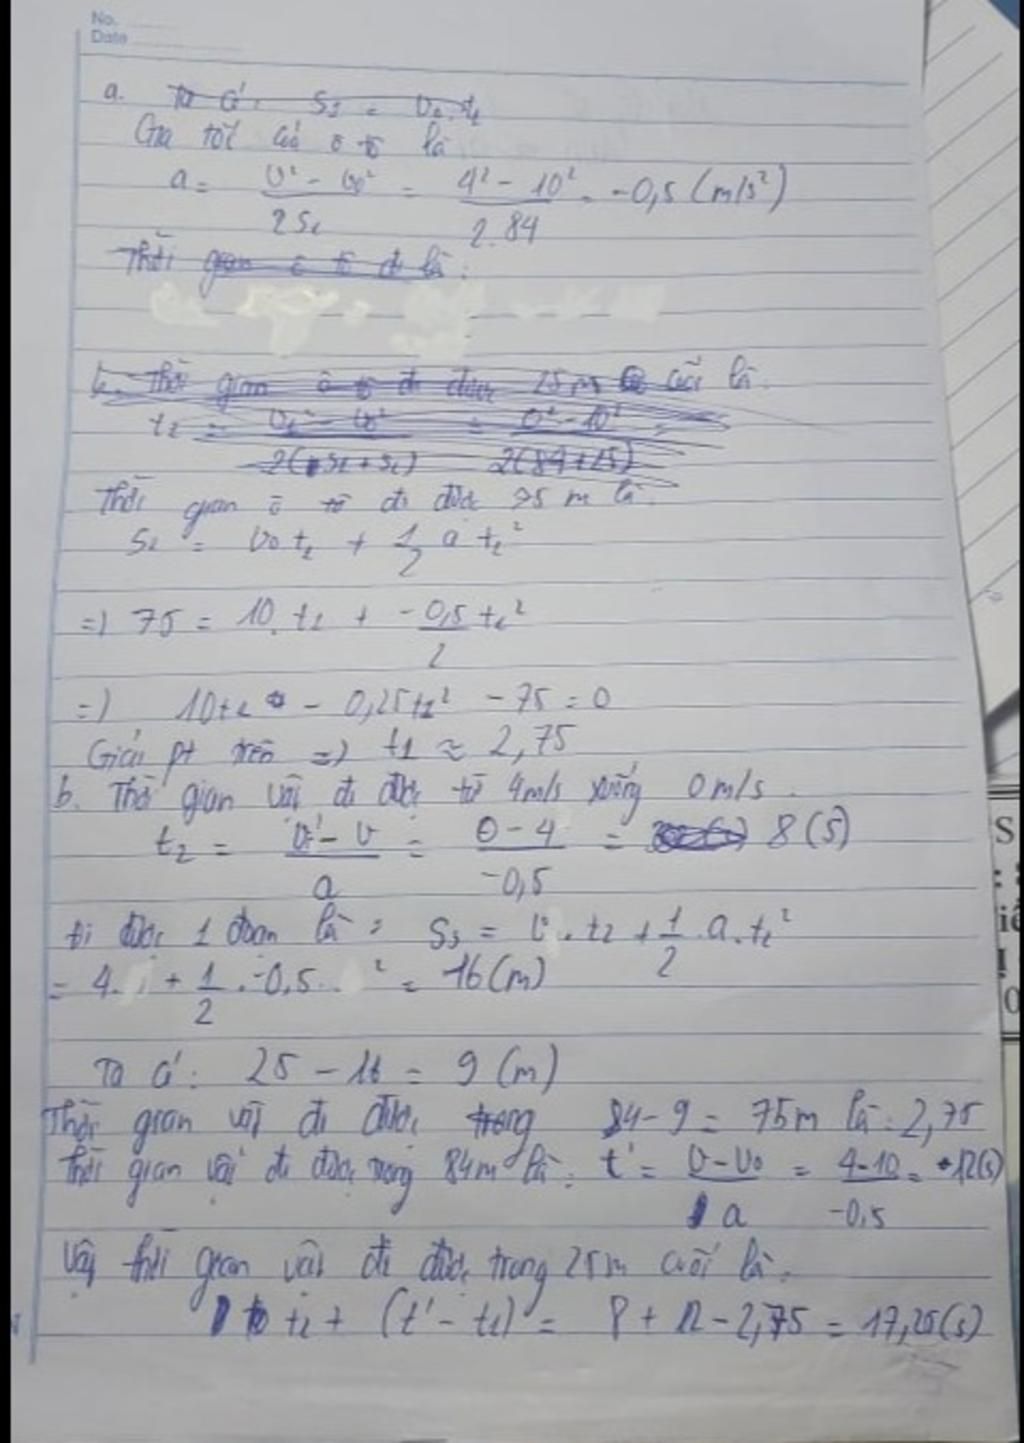 No.
Date
a. Ta có: S₁ = v₀.t₁
Gia tốc của ô tô là
a = (v² - v₀²)/(2S₁) = (4² - 10²)/(2.84) = -0,5 (m/s²)
Thời gian ô tô đi là:
b. Thời gian ô tô đi được 25m cuối là.
t₂ = = (0² - 10²)/(2(84+25)) =
Thời gian ô tô đi được 75 m là.
S₂ = v₀t₂ + 1/2 a t₂²
=) 75 = 10.t₂ + -0,5/2 t₂²
=) 10t₂ - 0,25t₂² - 75 = 0
Giải pt trên =) t₁ ≈ 2,75
b. Thời gian vật đi được từ 4m/s xuống 0m/s.
t₂ = (v' - v)/a = (0 - 4)/(-0,5) = 8 (s)
Đi được 1 đoạn là: S₃ = v.t₂ + 1/2.a.t₂²
= 4. + 1/2.-0,5. ² = 16(m)
Ta có: 25 - 16 = 9 (m)
Thời gian vật đi được trong 84-9 = 75m là: 2,75
Thời gian vật đi được trong 84m là: t' = (v - v₀)/a = (4-10)/(-0,5) = 12(s)
Vậy thời gian vật đi được trong 25m cuối là.
t₂ + (t' - t₁) = 8 + 12 - 2,75 = 17,25(s)
S